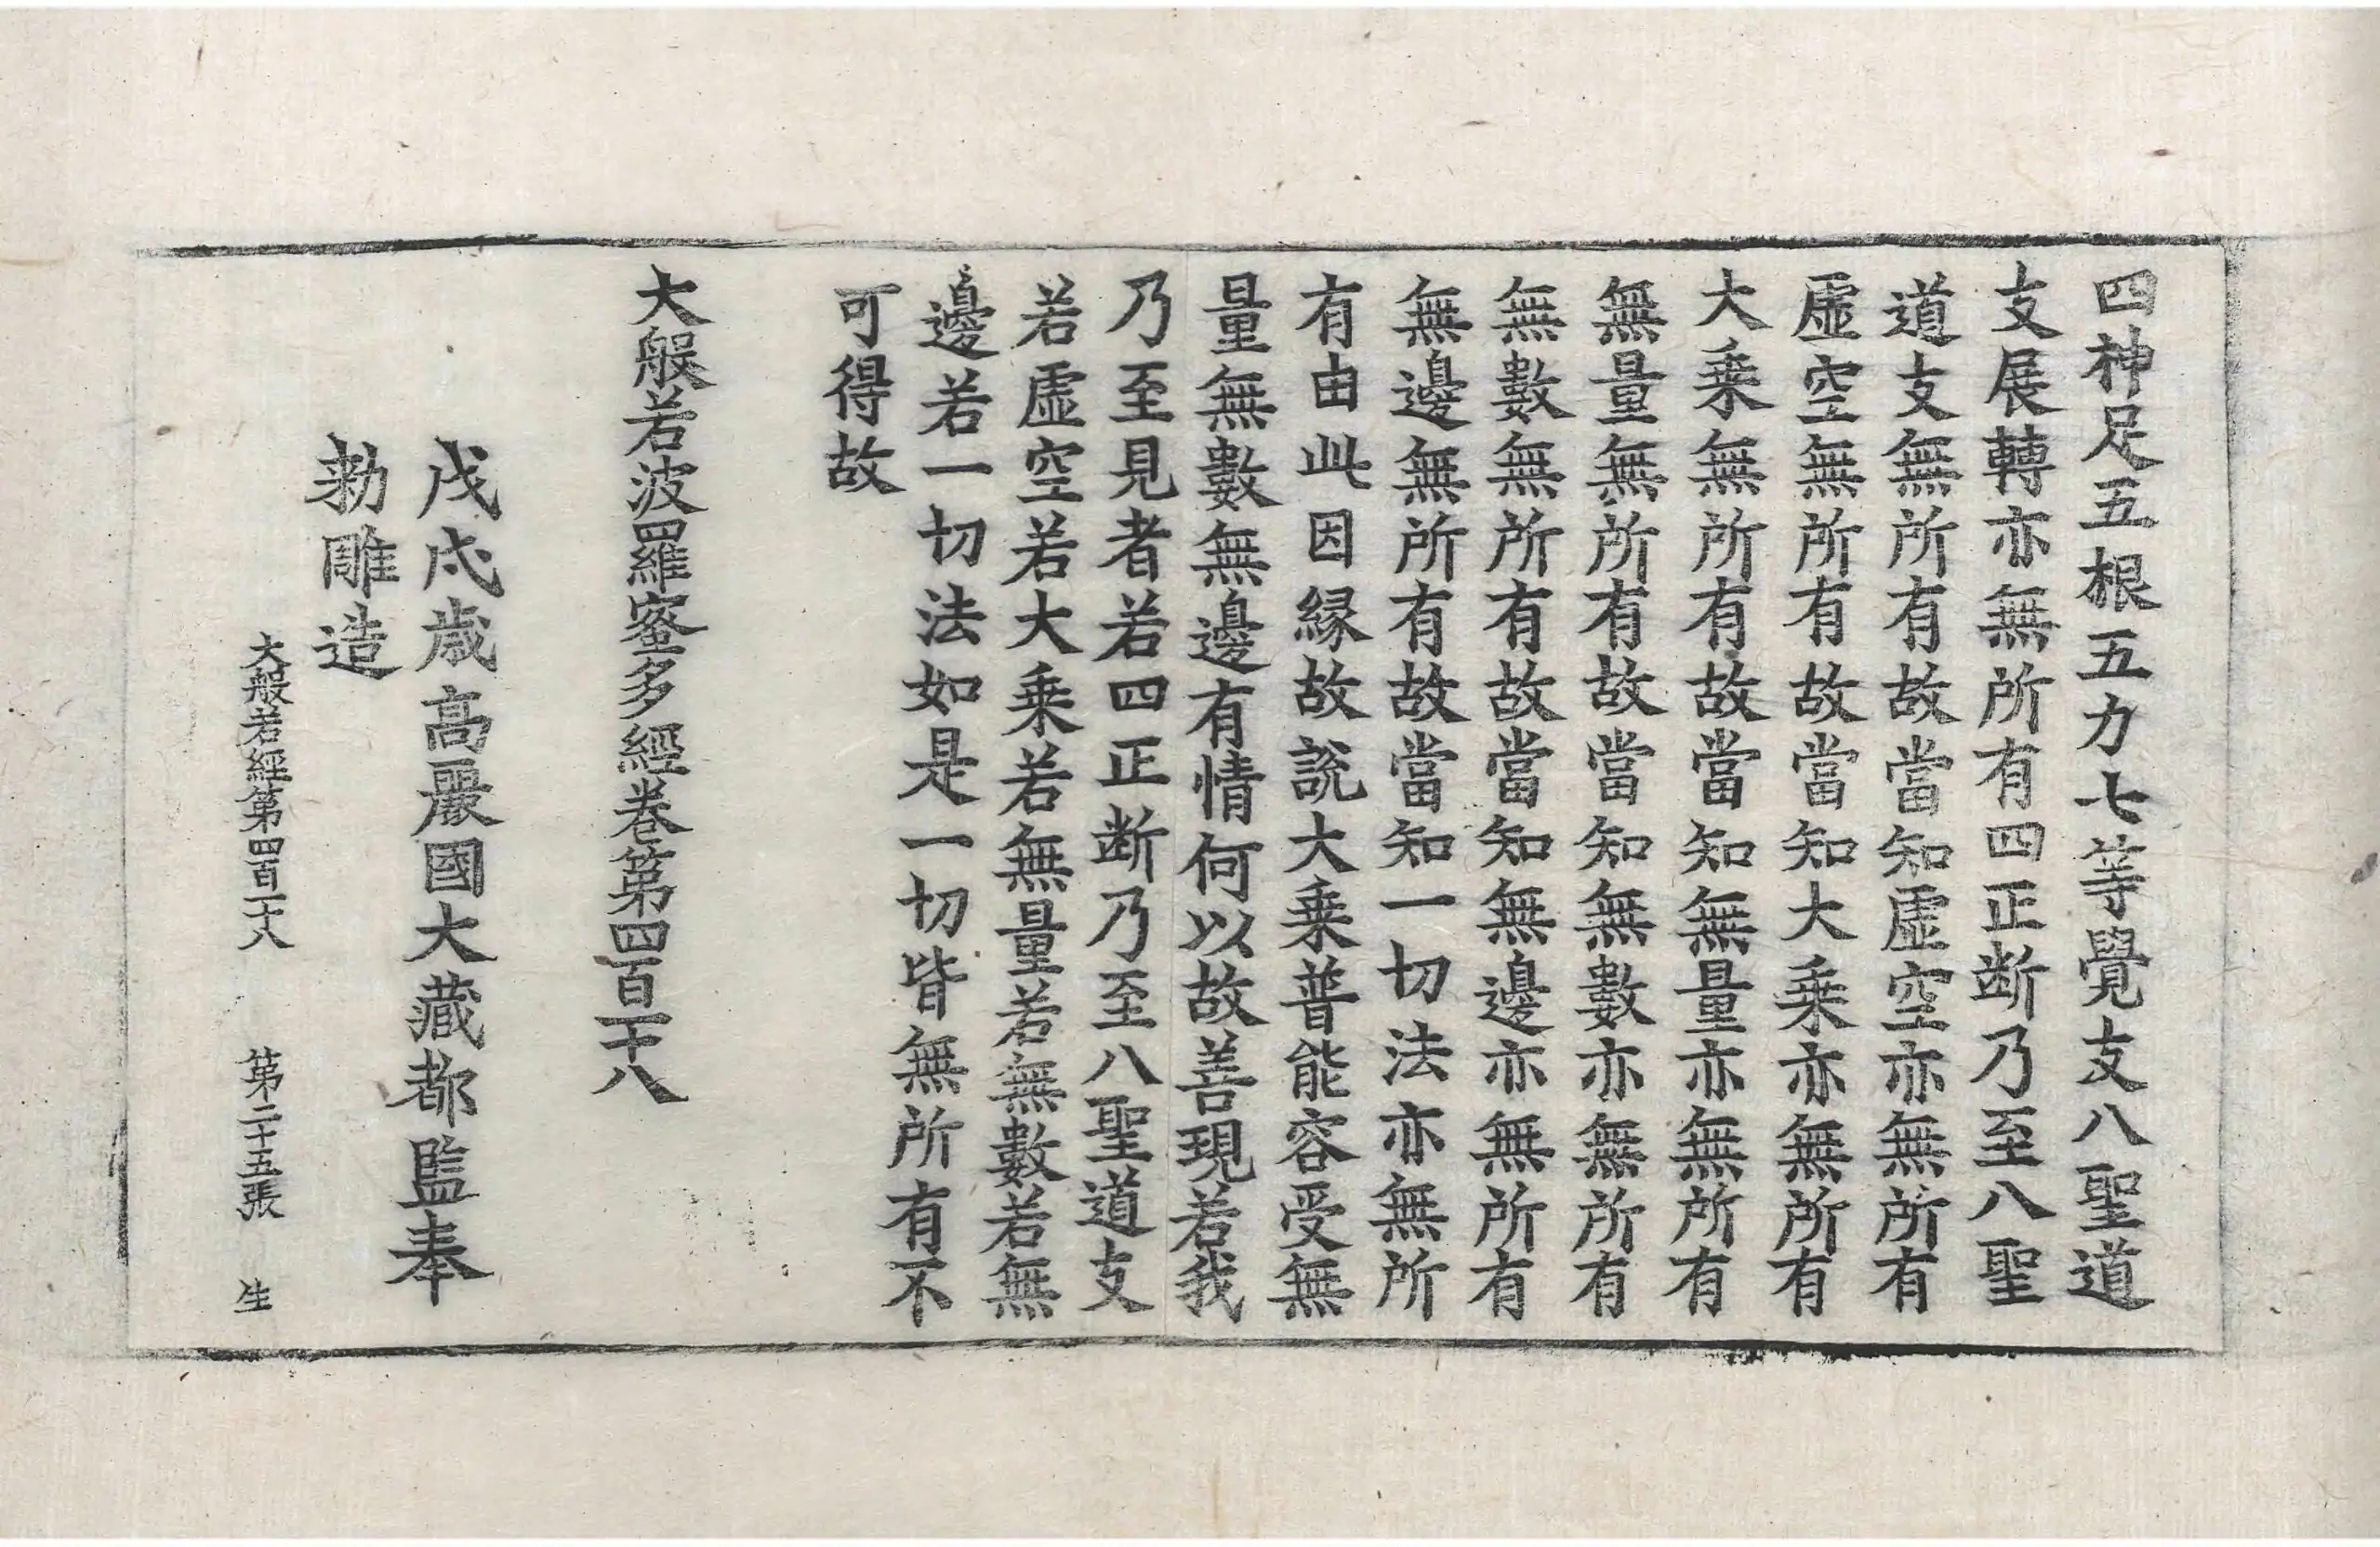 四神足五根五力七等覺支八聖道
支展轉亦無所有四正断乃至八聖
道支無所有故當知虛空亦無所有
虛空無所有故當知大乗亦無所有
大乗無所有故當知無量亦無所有
無量無所有故當知無數亦無所有
無數無所有故當知無邊亦無所有
無邊無所有故當知一切法亦無所
有由此因縁故說大乗普能容受無
量無數無邊有情何以故善現若我
乃至見者若四正断乃至八聖道支
若虛空若大乗若無量若無數若無
邊若一切法如是一切皆無所有不
可得故
大般若波羅蜜多經卷第四百一十八
戊戌歳高麗國大藏都監奉
勅雕造
大般若經第四百一十八 第二十五張 生